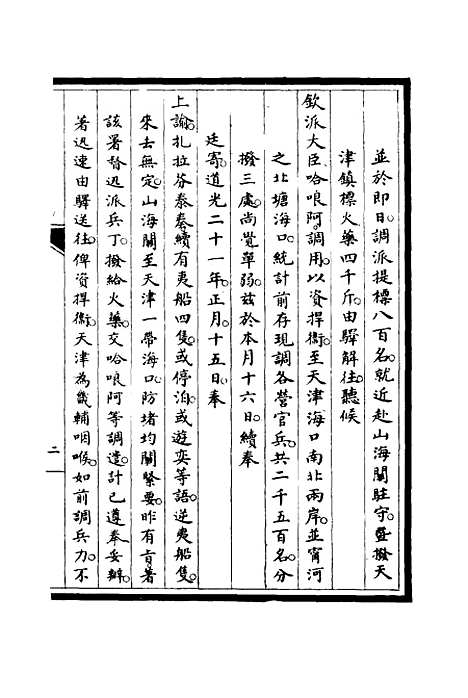 並於即日調派提標八百名就近赴山海關駐守並撥天
津鎮標火藥四千斤由驛解往聽候
欽派大臣哈哴阿調用以資捍衞至天津海口南北兩岸並甯河
之北塘海口統計前存現調各營官兵共二千五百名分
撥三處尚覺單弱茲於本月十六日續奉
廷寄道光二十一年正月十五日奉
上諭扎拉芬泰奏續有夷船四隻或停泊或遊奕等語逆夷船隻
來去無定山海關至天津一帶海口防堵均關緊要昨有旨著
該署督迅派兵丁撥給火藥交哈哴阿等調遣計已遵奉妥辦
著迅速由驛送往俾資捍衞天津為畿輔咽喉如前調兵力不
二